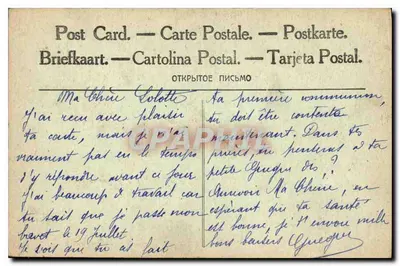 Post Card. — Carte Postale. — Postkarte.
Briefkaart. — Cartolina Postal. — Tarjeta Postal.
ОТКРЫТОЕ ПИСЬМО
Ma Chère Lolotte
J'ai reçu avec plaisir
ta carte, mais je n'ai
vraiment pas eu le temps
d'y répondre avant ce jour
j'ai beaucoup de travail car
tu sais que je passe mon
brevet le 19 Juillet
Je vois que tu as fait
ta première communion,
tu dois être contente
maintenant. Dans tes
prières, tu penseras à ta
petite
Aurevoir Ma Chérie, en
espérant que ta santé
est bonne, je t'envoie mille
bons baisers